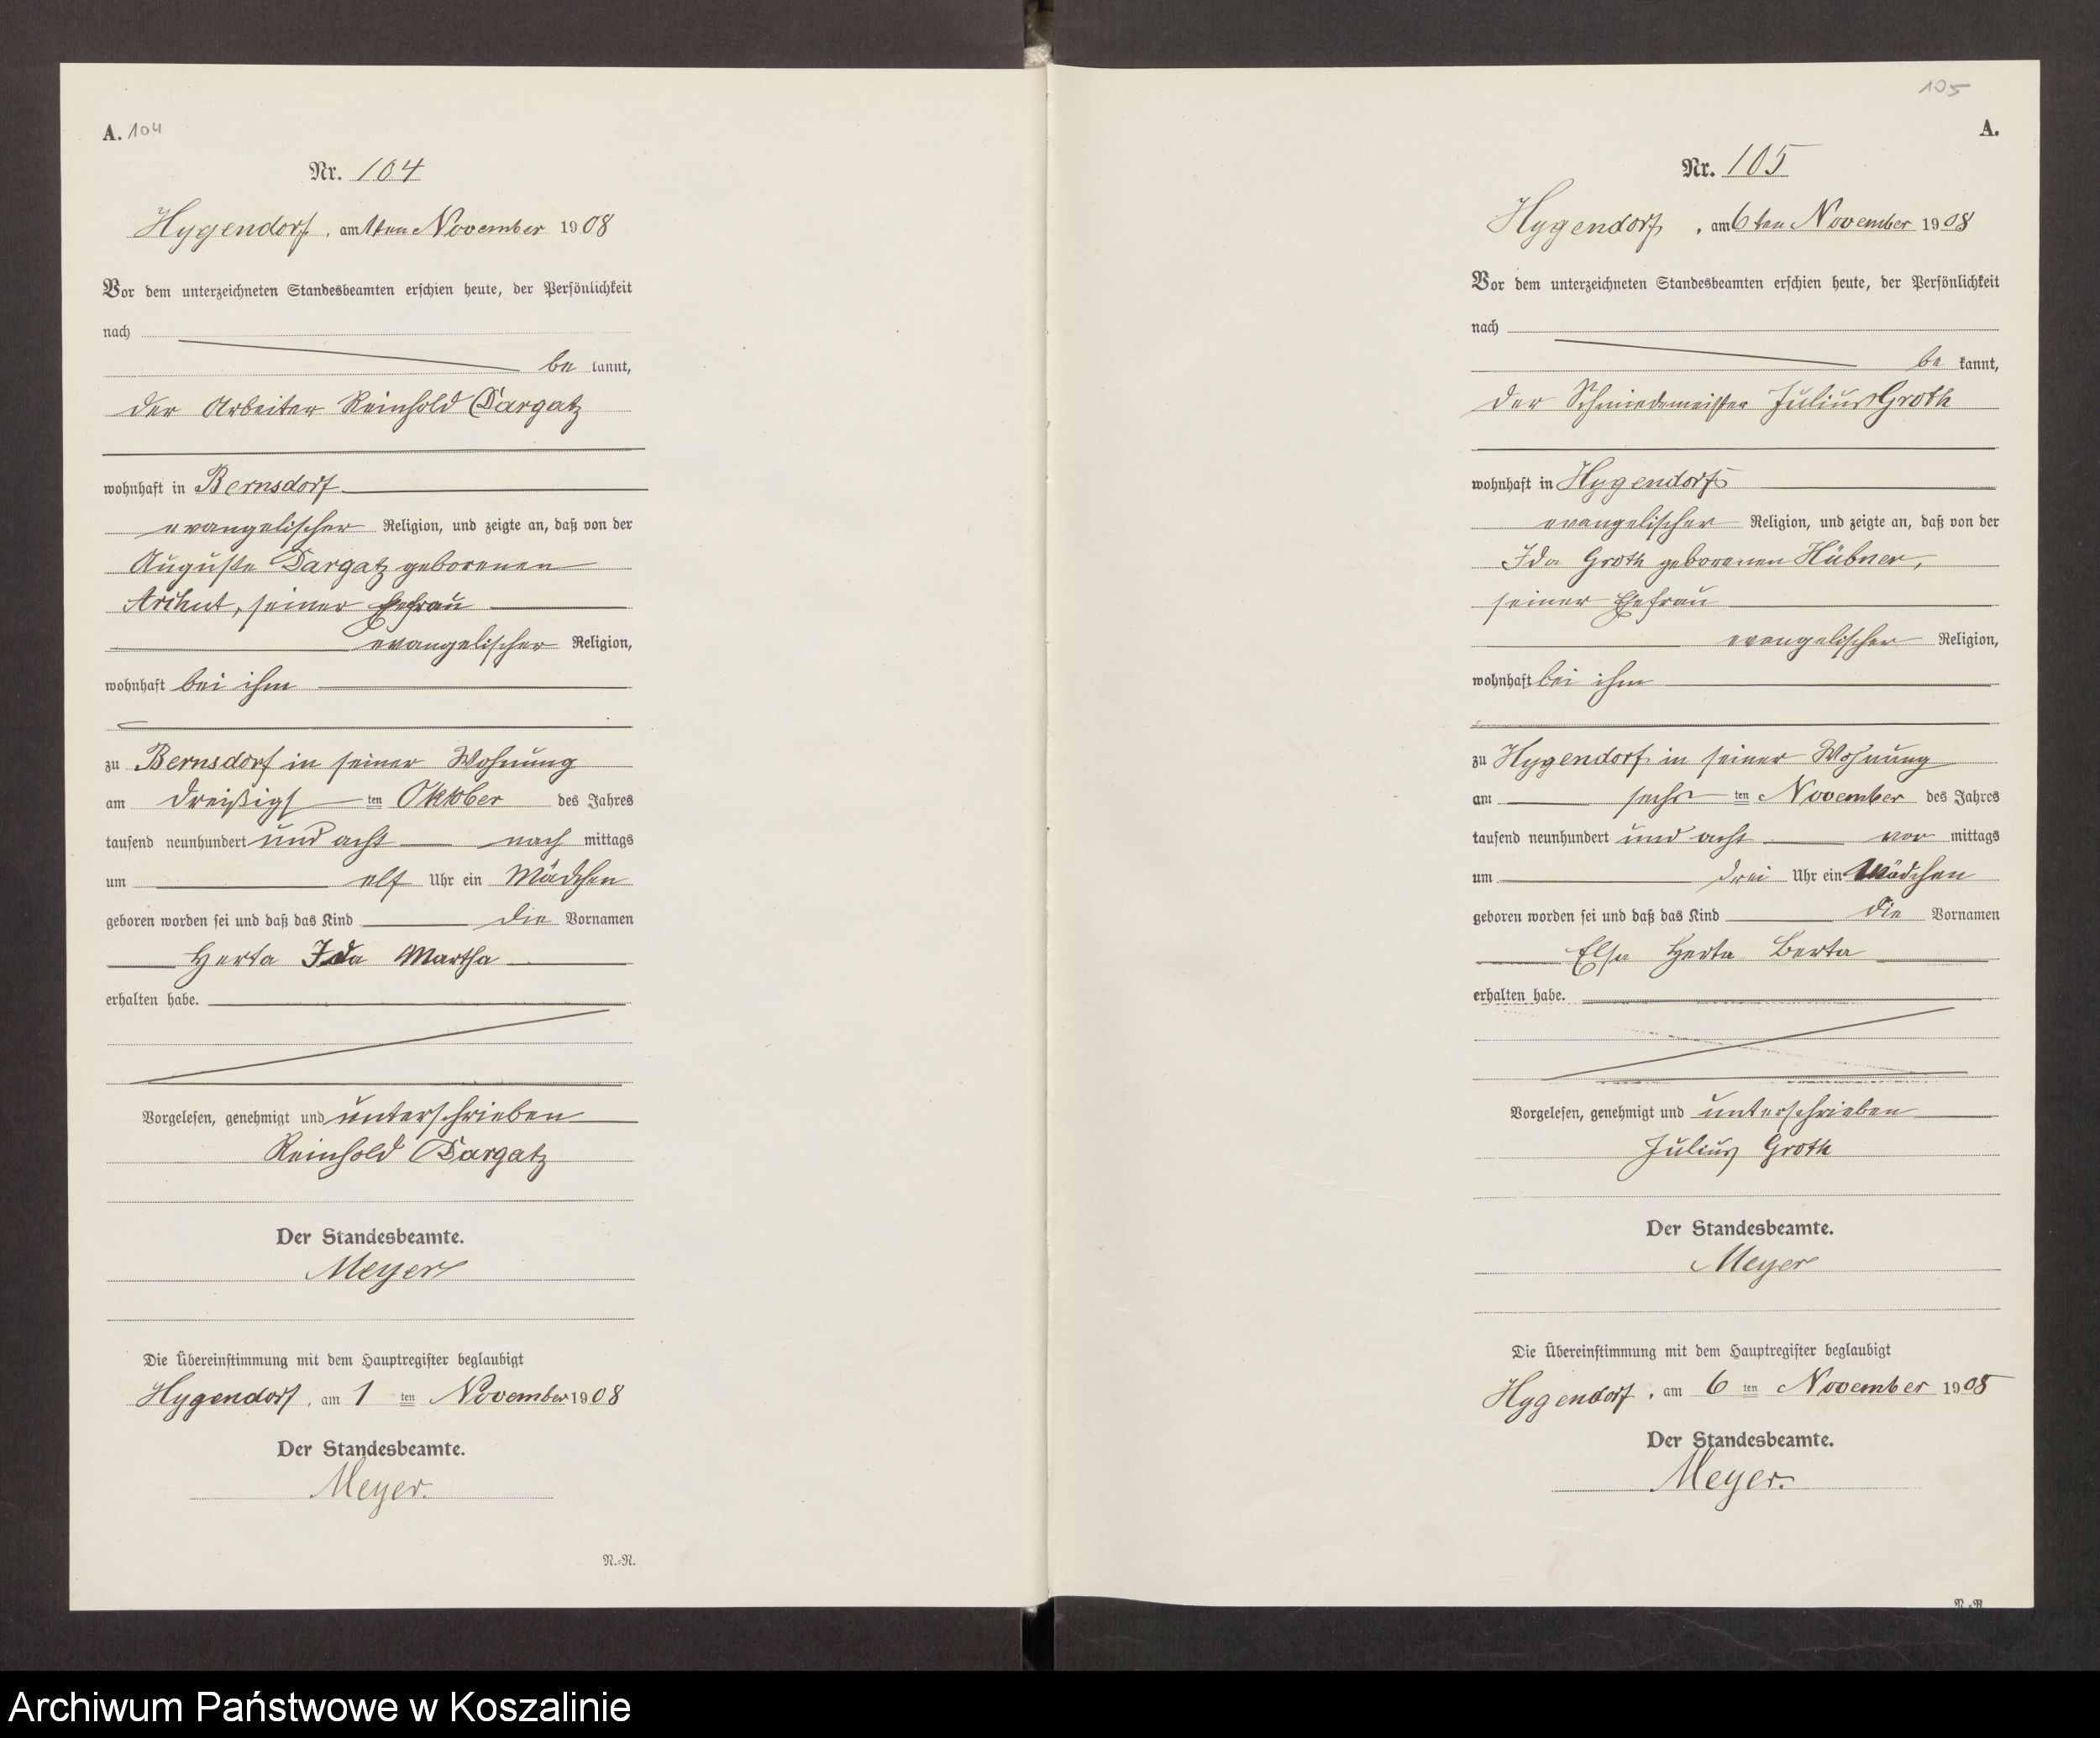 A. 104
Nr. 104
Hygendorf, am 1ten November 1908
Vor dem unterzeichneten Standesbeamten erschien heute, der Persönlichkeit
nach
be kannt,
der Arbeiter Reinhold Dargatz
wohnhaft in Bernsdorf
evangelischer Religion, und zeigte an, daß von der
Auguste Dargatz geborenen
seiner Ehefrau
evangelischer Religion,
wohnhaft bei ihm
zu Bernsdorf in seiner Wohnung
am dreißigs ten Oktober des Jahres
tausend neunhundert und acht nach mittags
um elf Uhr ein Mädchen
geboren worden sei und daß das Kind die Vornamen
Herta Ida Martha
erhalten habe.
Vorgelesen, genehmigt und unterschrieben
Reinhold Dargatz
Der Standesbeamte.
Meyer
Die Übereinstimmung mit dem Hauptregister beglaubigt
Hygendorf, am 1 ten November 1908
Der Standesbeamte.
Meyer.
N.-N.
105
A.
Nr. 105
Hygendorf, am 6ten November 1908
Vor dem unterzeichneten Standesbeamten erschien heute, der Persönlichkeit
nach
be kannt,
der Schmiedemeister Julius Groth
wohnhaft in Hygendorf
evangelischer Religion, und zeigte an, daß von der
Ida Groth geborenen Hübner,
seiner Ehefrau
evangelischer Religion,
wohnhaft bei ihm
zu Hygendorf in seiner Wohnung
am sechs ten November des Jahres
tausend neunhundert und acht vor mittags
um drei Uhr ein Mädchen
geboren worden sei und daß das Kind die Vornamen
Else Herta Berta
erhalten habe.
Vorgelesen, genehmigt und unterschrieben
Julius Groth
Der Standesbeamte.
Meyer
Die Übereinstimmung mit dem Hauptregister beglaubigt
Hygendorf, am 6 ten November 1908
Der Standesbeamte.
Meyer.
N.-N.
Archiwum Państwowe w Koszalinie